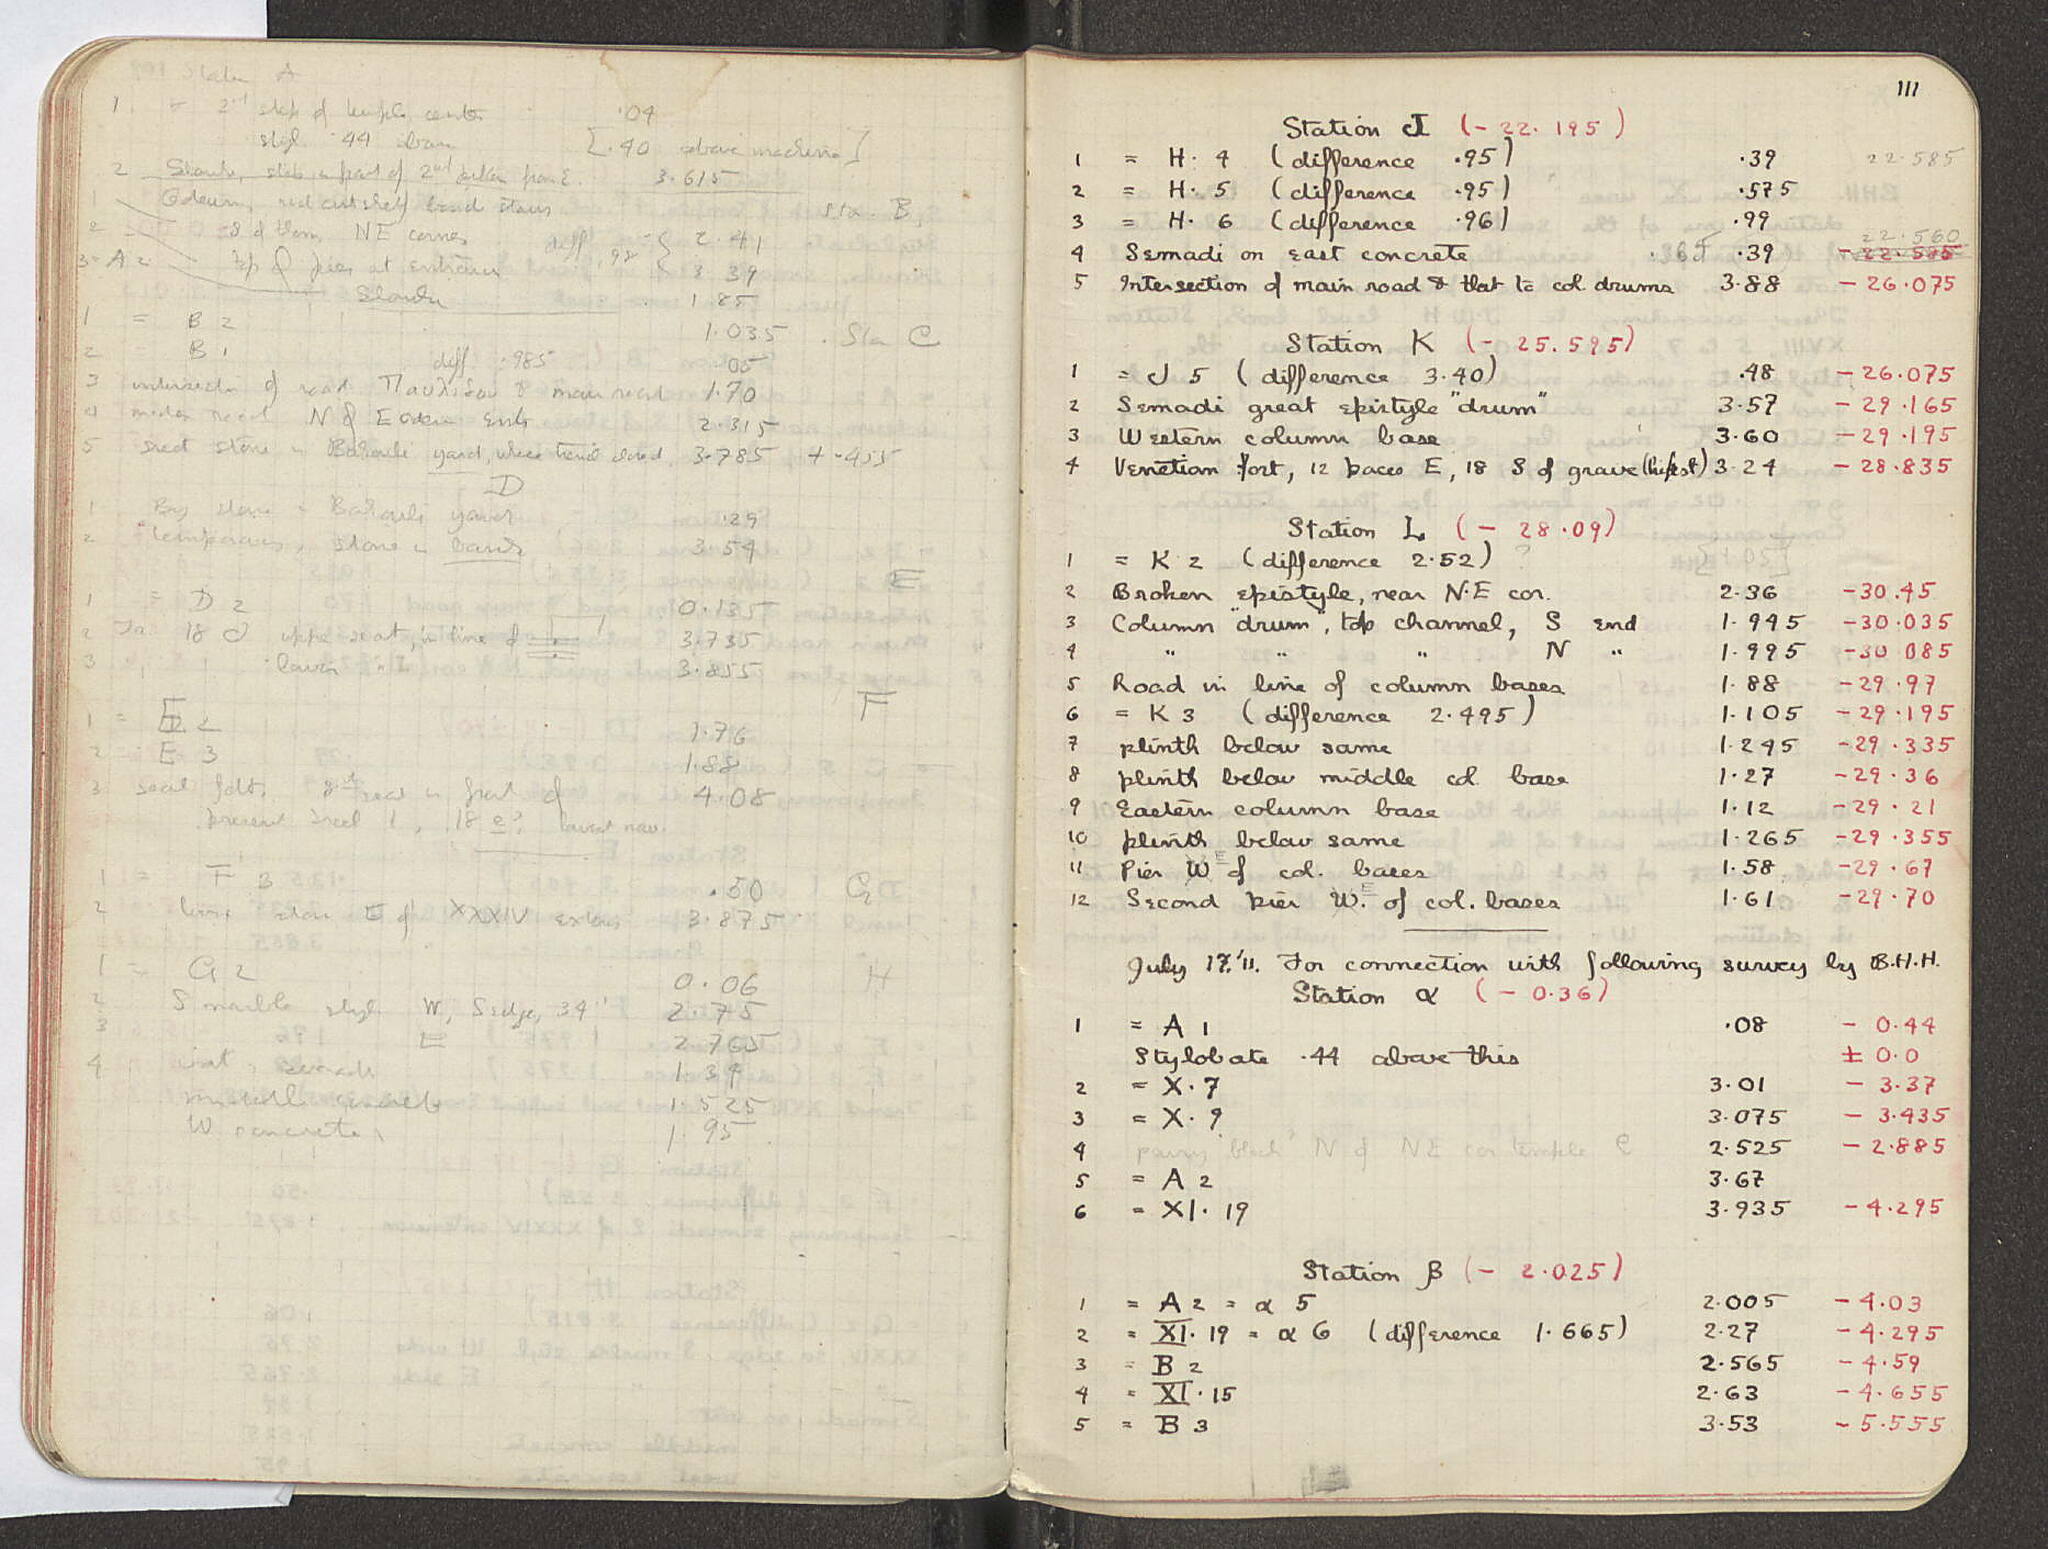 Station A
1 = 2nd step of temple, center .04
styl. .44 above [.40 above machine]
2 part of 2nd from E. 3.615
1 Odeum, stairs Sta. B,
2 NE corner diff. .98 { 2.41
3 = A 2 top of pier at entrance 3 39
1 85
1 = B 2 1.035 . Sta C
2 B 1 diff .985 05
3 intersection of road & main road 1.70
4 road N of E 2.315
5 stone in yard, where 3.785 + .455
D
1 Big stone in yard .29
2 Temporary, stone in 3.54
E
1 = D 2 0.135
2 18 upper seat, in line of 3.735
3 lower " " 3.855
F
1 = E 2 1.76
2 = E 3 1.88
3 seat in front of 4.08
present 1, 18 lowest
1 = F 3 .50 G
2 stone E of XXXIV 3.875
1 = G 2 0.06 H
2 S marble styl. W, S edge, 34" 2.75
3 E 2.765
4 1.39
middle concrete 1.525
W. concrete 1.95
111
Station J (- 22.195)
1 = H. 4 (difference .95) .39 22.585
2 = H. 5 (difference .95) .575
3 = H. 6 (difference .96) .99
22.560
4 Semadi on east concrete .365 .39 - 22.585
5 Intersection of main road & that to col. drums 3.88 - 26.075
Station K (- 25.595)
1 = J 5 (difference 3.40) .48 - 26.075
2 Semadi great epistyle "drum" 3.57 - 29.165
3 Western column base 3.60 - 29.195
4 Venetian fort, 12 paces E, 18 S of grave (highest) 3.24 - 28.835
Station L (- 28.09)
1 = K 2 (difference 2.52) ?
2 Broken epistyle, near N.E cor. 2.36 -30.45
3 Column "drum", top channel, S end 1.945 -30.035
4 " " " N " 1.995 -30 085
5 Road in line of column bases 1.88 -29.97
6 = K 3 (difference 2.495) 1.105 -29.195
7 plinth below same 1.245 -29.335
8 plinth below middle col. base 1.27 -29.36
9 Eastern column base 1.12 -29.21
10 plinth below same 1.265 -29.355
11 Pier W E of col. bases 1.58 -29.67
12 Second pier W. E of col. bases 1.61 -29.70
July 17, '11. For connection with following survey by B.H.H.
Station α (- 0.36)
1 = A 1 .08 - 0.44
Stylobate .44 above this ± 0.0
2 = X.7 3.01 - 3.37
3 = X.9 3.075 - 3.435
4 paving block N of NE cor temple C 2.525 - 2.885
5 = A 2 3.67
6 = XI. 19 3.935 - 4.295
Station β (- 2.025)
1 = A 2 = α 5 2.005 - 4.03
2 = XI. 19 = α 6 (difference 1.665) 2.27 - 4.295
3 = B 2 2.565 - 4.59
4 = XI. 15 2.63 - 4.655
5 = B 3 3.53 - 5.555